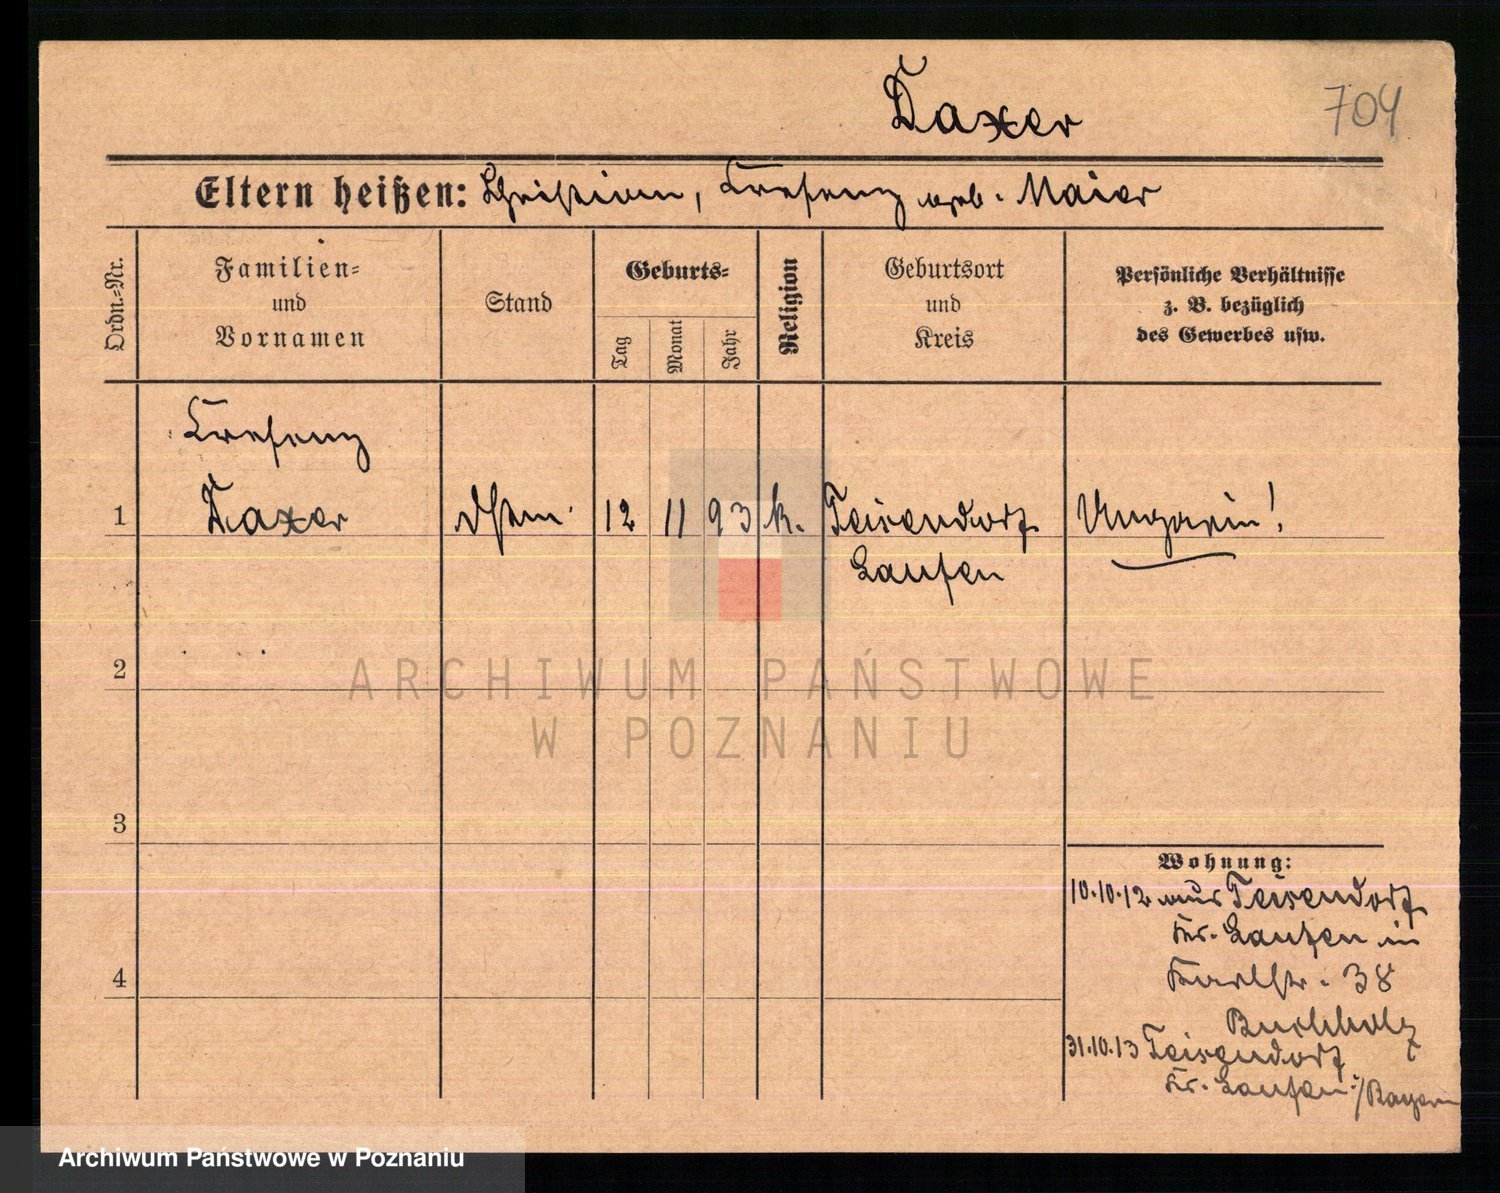 Daxer
704
Eltern heißen: Christian, Kresenz geb. Maier
Ordn.=Nr.
Familien=
und
Vornamen
Stand
Geburts=
Tag
Monat
Jahr
Religion
Geburtsort
und
Kreis
Persönliche Verhältnisse
z. B. bezüglich
des Gewerbes usw.
Kresenz
1 Daxer 12 11 93 k. Teisendorf Ungarin!
Laufen
2
ARCHIWUM PAŃSTWOWE
W POZNANIU
3
Wohnung:
10.10.12 aus Teisendorf
Kr. Laufen in
4
Karlstr. 38
Buchholz
31.10.13 Teisendorf
Kr. Laufen i/Bayern
Archiwum Państwowe w Poznaniu